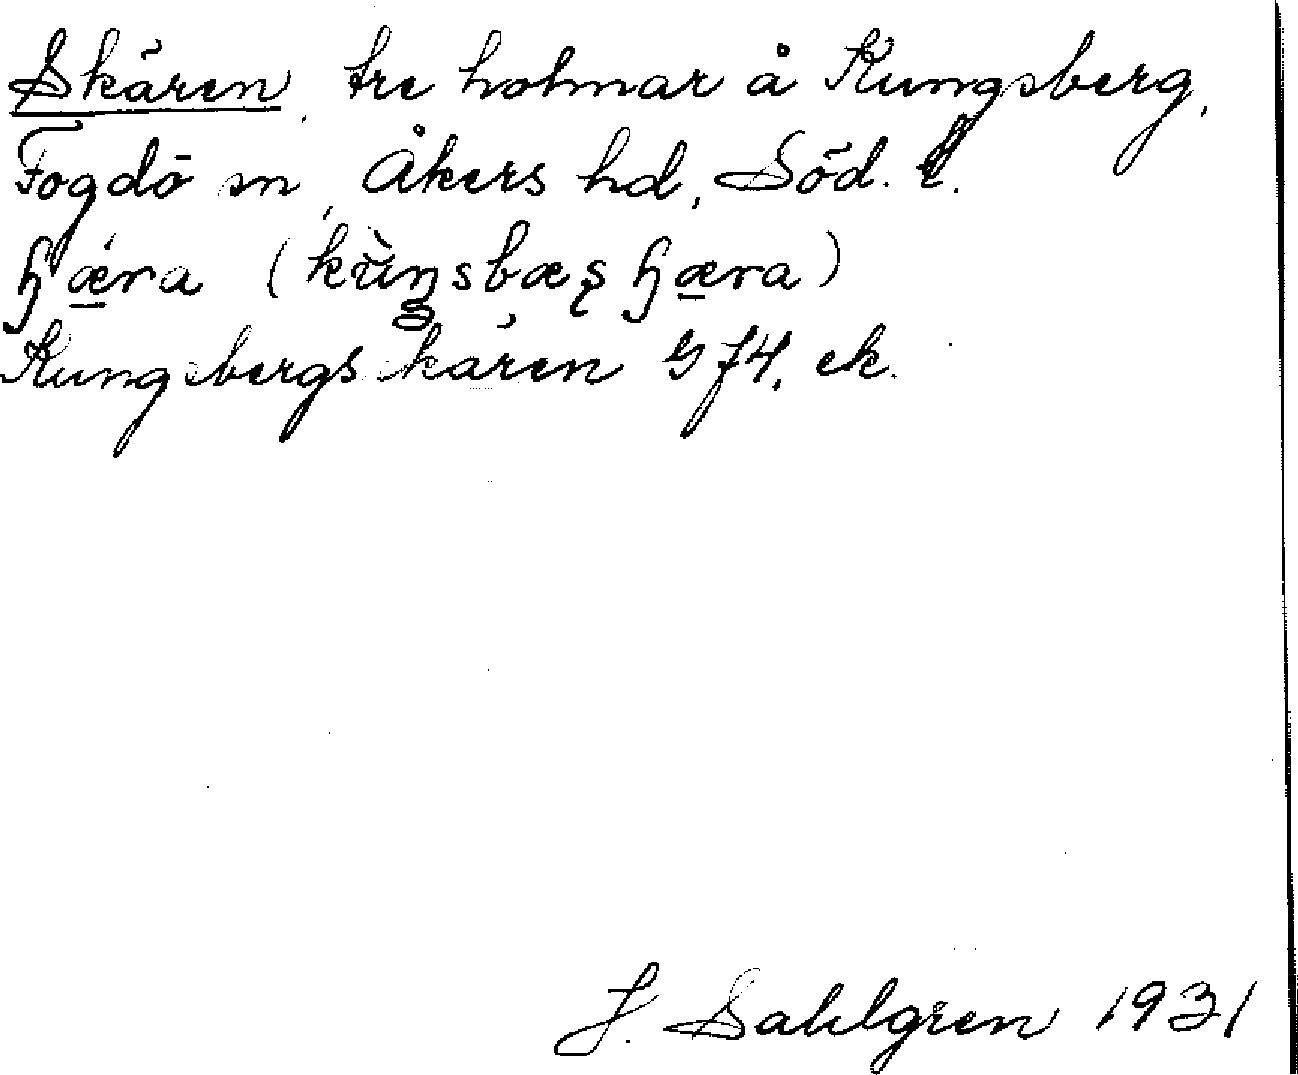 Skären, tre holmar å Kungsberg,
Fogdö sn, Åkers hd, Söd. l.
ɧæ̀ra (kùŋsbæʂɧæra)
Kungsbergskären G J4, ek.
J. Sahlgren 1931